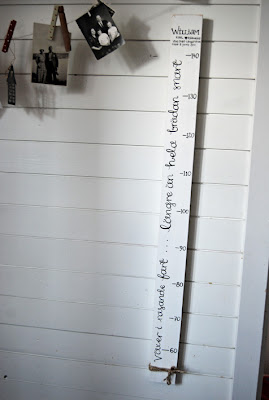 WILLIAM
-140
-130
-120
-110
-100
-90
-80
-70
-60
Växer i rasande fart .... längre än hela brädan snart